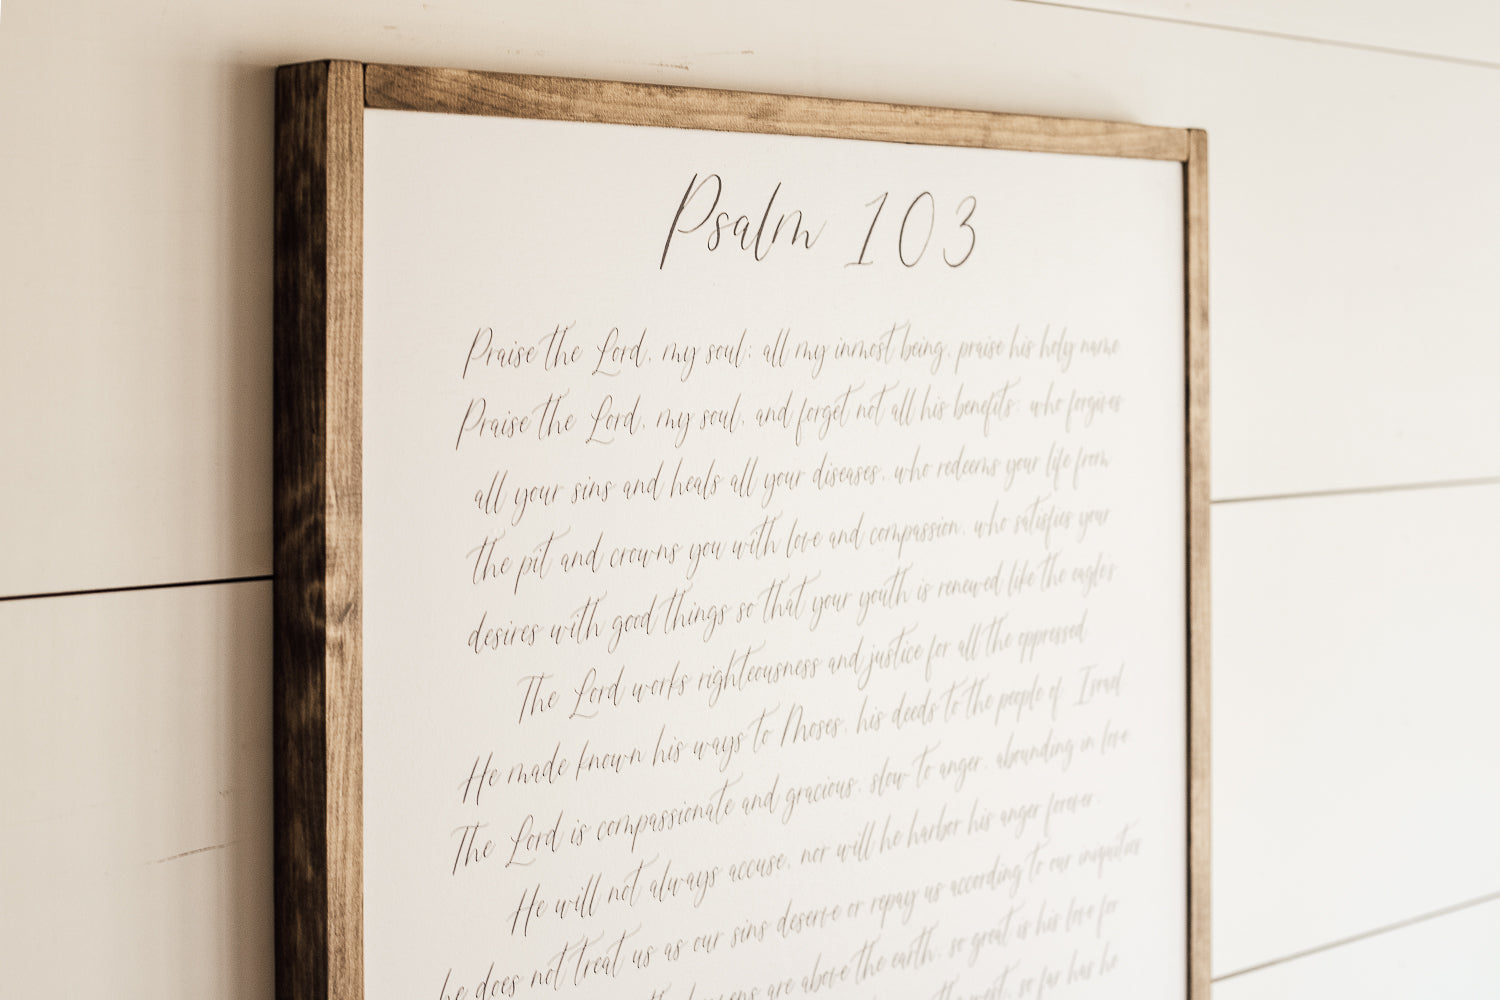 Psalm 103
Praise the Lord, my soul; all my inmost being, praise his holy name.
Praise the Lord, my soul, and forget not all his benefits: who forgives
all your sins and heals all your diseases, who redeems your life from
the pit and crowns you with love and compassion, who satisfies your
desires with good things so that your youth is renewed like the eagle's
The Lord works righteousness and justice for all the oppressed.
He made known his ways to Moses, his deeds to the people of Israel
The Lord is compassionate and gracious, slow to anger, abounding in love
He will not always accuse, nor will he harbor his anger forever.
he does not treat us as our sins deserve or repay us according to our iniquities
are above the earth, so great is his love for
the west, so far has he